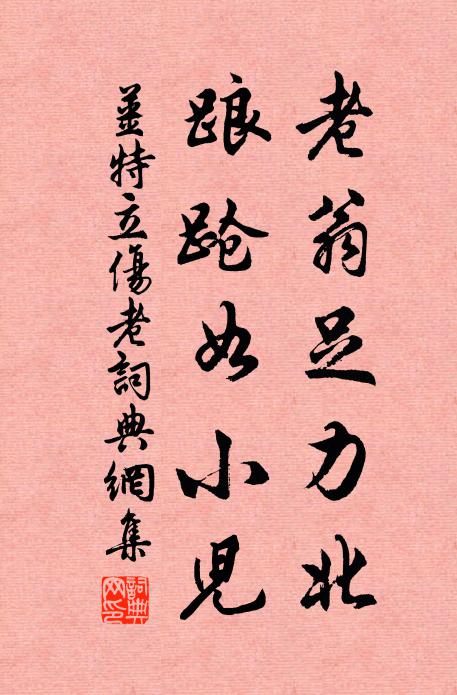 老翁足力
踉蹌如小兒
薑特立傷老詞典網集